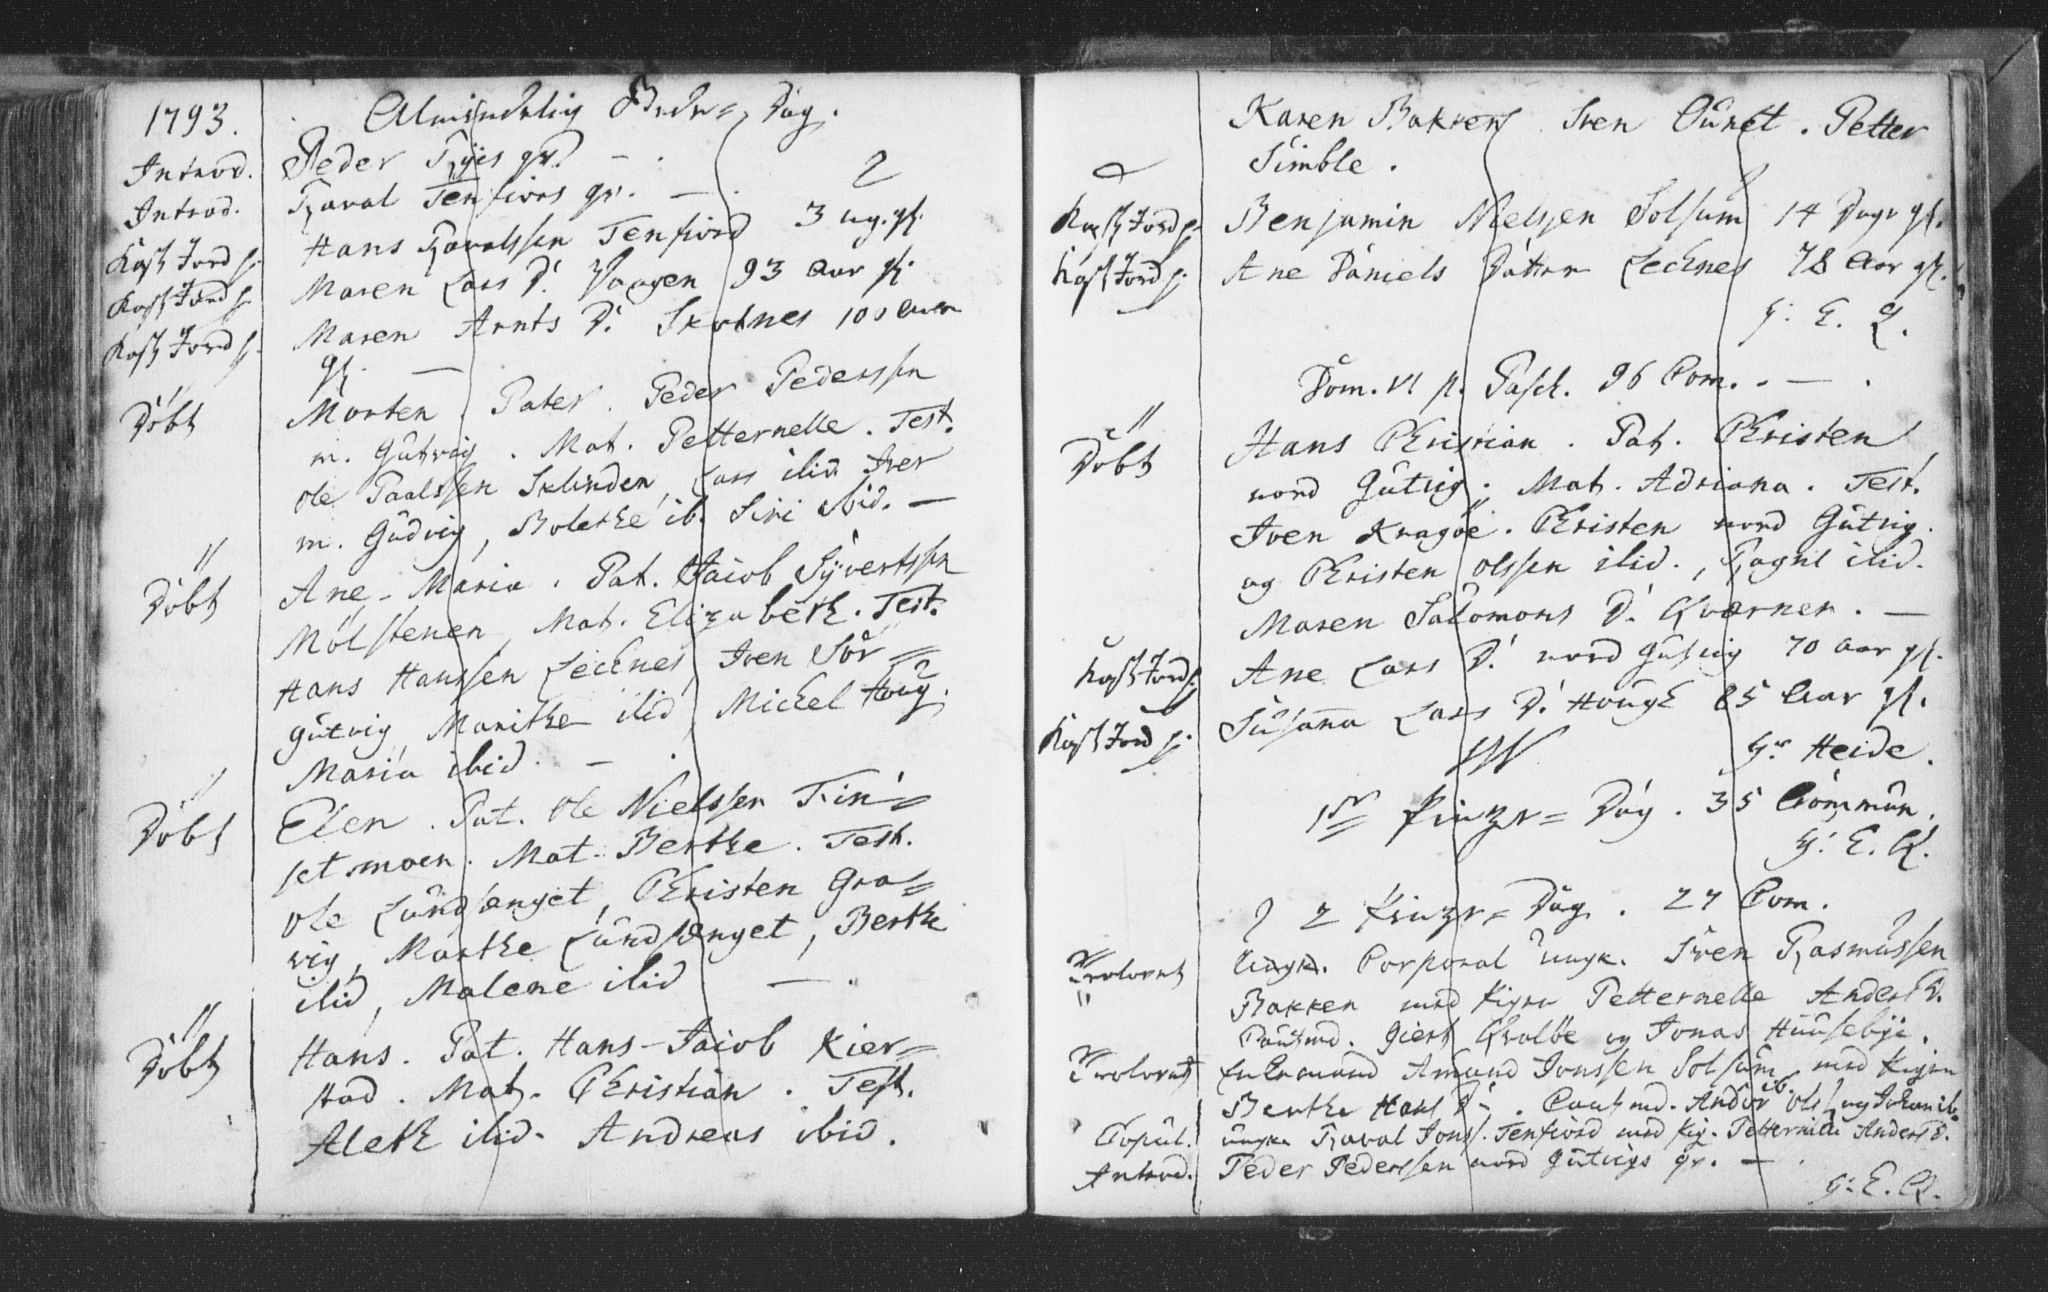 1793. Almindelig Bede= Dag.
Introd. Peder Ryes qv.
Introd. Raval Tenfiors qv. —
Kast Jord p. Hans Ravalssen Tenfiord 3 ug. gl.
Kast Jord p. Maren Lars D. Vaagen 93 Aar gl.
Kast Jord p. Maren Arnts D. Skotnes 100 Aar
gl. —
Döbt Morten. Pater. Peder Pederssen
m. Gutvig. Mat. Petternelle. Test.
Ole Paalssen Sklinden, Lars ibid. Iver
m. Gudvig, Bolethe ib. Siri ibid. —
Döbt Ane-Maria. Pat. Jacob Syvertssen
Mölstenen, Mat. Elizabeth. Test.
Hans Hanssen Lecknes, Iven Sör=
gutvig Marithe ibid, Mickel Houg.
Maria ibid. —
Döbt Elen. Pat. Ole Nielssen Fin=
set moen. Mat. Berthe. Test.
Ole Lundsænget, Christen Gra=
vig, Marthe Lundsænget, Berthe
ibid, Malene ibid —
Döbt Hans. Pat. Hans-Jacob Kier=
stad. Mat. Christian. Test.
Aleth ibid. Andreas ibid.
Karen Bakken Iven Petter
Simble.
Kast Jord p. Benjamin Nielssen Solsum 14 Dage gl.
Kast Jord p. Ane Daniels Datter Lecknes 78 Aar gl.
H: E. Q.
Dom. VI p. Pasch. 96 Com. —
Döbt Hans Christian. Pat. Christen
nord Gutvig. Mat. Adriana. Test.
Iven Kragöe. Christen nord Gutvig.
og Christen Olssen ibid., Ragnil ibid.
Maren Salomons D. Qværnen. —
Kast Jord p. Ane Lars D. nord Gutvig 70 Aar gl.
Kast Jord p. Susanna Lars D. Hough 85 Aar gl.
Hr Heide.
1ste Pintze= Dag. 35 Commun.
H: E. Q.
2 Pintze= Dag. 27 Com.
Trolovet Corporal ungk. Iven Rasmussen
Bakken med Pigen Petternelle Anders D.
Cautmd. Giert Qvalöe og Jonas Huusebye.
Trolovet Enkemand Amund Jonssen Solsum med Pigen
Berthe Hans D. Cautmd. Andor Ols. ib. og Johan ib.
Copul. ungk. Raval Jons. Tenfiord med Pig. Petternelle Anders D.
Introd. Peder Pederssen nord Gutvigs qv. —
H: E. Q.